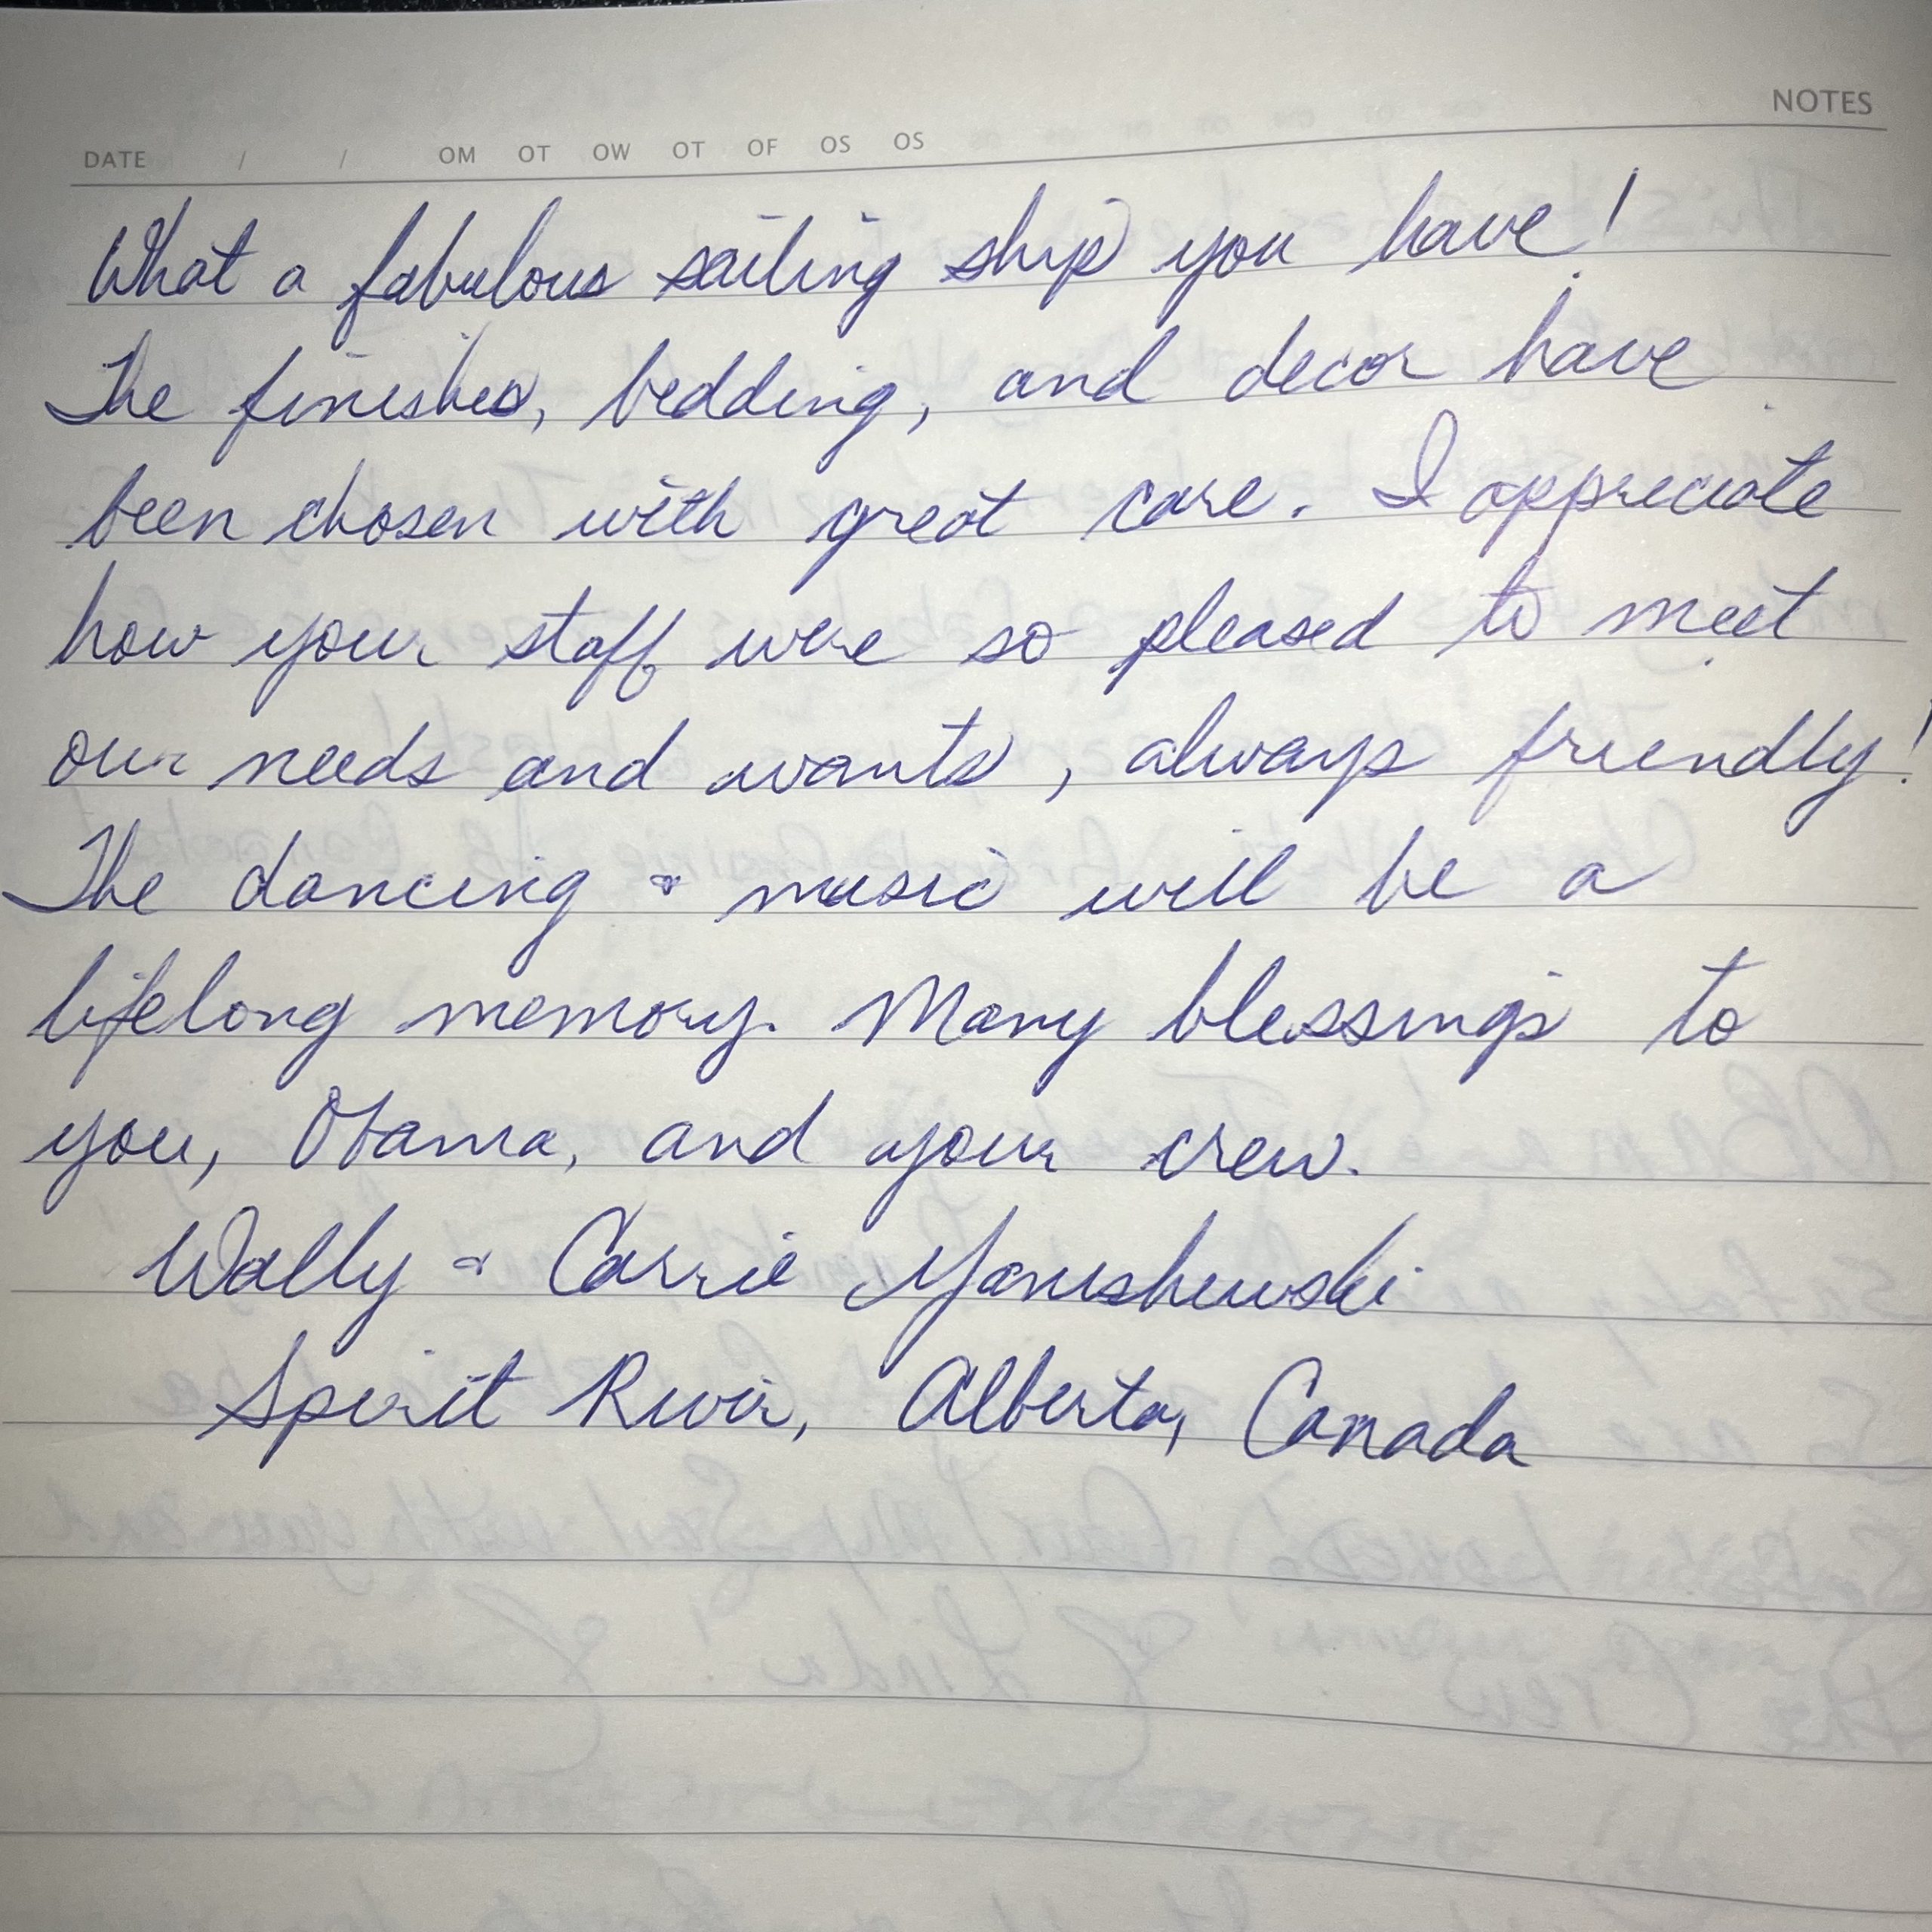 NOTES
DATE / / OM OT OW OT OF OS OS
What a fabulous sailing ship you have!
The finishes, bedding, and decor have
been chosen with great care. I appreciate
how your staff were so pleased to meet
our needs and wants, always friendly!
The dancing & music will be a
lifelong memory. Many blessings to
you, Obama, and your crew.
Wally & Carrie Yanishewski
Spirit River, Alberta, Canada